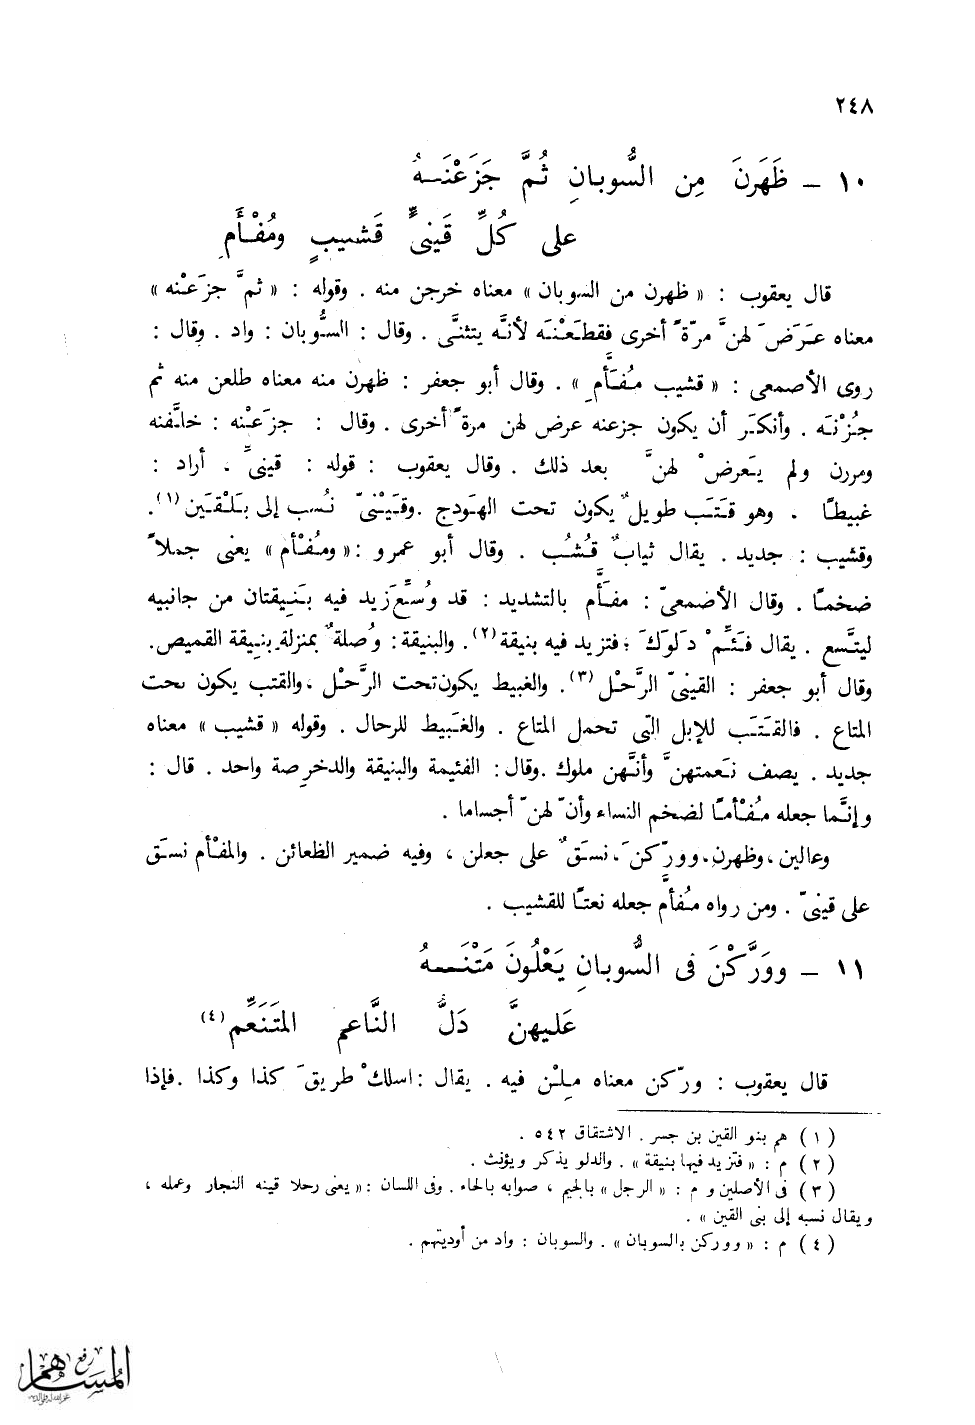 ٢٤٨
١٠ – ظَهَرنَ مِن السُّوبانِ ثُمَّ جَزَعْنَـهُ
على كُلِّ قَينىٍّ قَشيبٍ ومُفْـأَمِ
قال يعقوب : « ظهرن من السوبان » معناه خرجن منه . وقوله : « ثمَّ جزَعْنه »
معناه عرَضَ لهنَّ مرّةً أخرى فقطعْنَه لأنَّه يتثنَّى . وقال : السُّوبان : واد . وقال :
روى الأصمعى : « قشيب مُفَأَّمِ » . وقال أبو جعفر : ظهرن منه معناه طلعن منه ثم
جُزْنَه . وأنكَر أن يكون جزعنه عرض لهن مرةً أخرى . وقال : جزَعْنه : خلَّفنه
ومررن ولم يَعرضْ لهنَّ بعد ذلك . وقال يعقوب : قوله : قينىٍّ ، أراد :
غبيطًا . وهو قَتَب طويلٌ يكون تحت الهَودج . وقَيْنىّ نُسب إلى بَلْقَين (١) .
وقشيب : جديد . يقال ثيابٌ قُشُب . وقال أبو عمرو : « ومُفْأم » يعنى جملاً
ضخمًا . وقال الأصمعىّ : مفأَّم بالتشديد : قد وُسِّع زيد فيه بَنِيقتان من جانبيه
ليتَّسع . يقال فَئِّمْ دَلوَكَ ؛ فتزيد فيه بنيقة (٢) . والبنيقة : وُصلةٌ بمنزلة بنِيقة القميص .
وقال أبو جعفر : القينىّ الرَّحْل (٣) . والغبيط يكون تحت الرَّحْل ، والقتب يكون تحت
المتاع . فالقَتَب للإبل التى تحمل المتاع . والغَبيط للرحال . وقوله « قشيب » معناه
جديد . يصف نَعمتهنَّ وأنَّهن ملوك . وقال : الفئيمة والبنيقة والدخرِصة واحد . قال :
وإنَّما جعله مُفْأمًا لضخم النساء وأنّ لهنّ أجساما .
وعالين ، وظهرن ، وورّكنَ ، نسَقٌ على جعلن ، وفيه ضمير الظعائن . والمفْأم نسَق
على قينىّ . ومن رواه مُفأَّم جعله نعتًا للقشيب .
١١ – ووَرَّكْنَ فى السُّوبانِ يَعْلُونَ مَتْنَـهُ
عَليهنَّ دَلُّ النَّاعمِ المتَنَعِّمِ (٤)
قال يعقوب : ورّكن معناه مِلْن فيه . يقال : اسلكْ طريقَ كذا وكذا . فإذا
( ١ ) هم بنو القين بن جسر . الاشتقاق ٥٤٢ .
( ٢ ) م : « فتزيد فيها بنيقة » . والدلو يذكر ويؤنث .
( ٣ ) فى الأصلين و م : « الرجل » بالجيم ، صوابه بالحاء . وفى اللسان : « يعنى رحلا قينه النجار وعمله ،
ويقال نسبه إلى بنى القين » .
( ٤ ) م : « ووركن بالسوبان » . والسوبان : واد من أوديتهم .